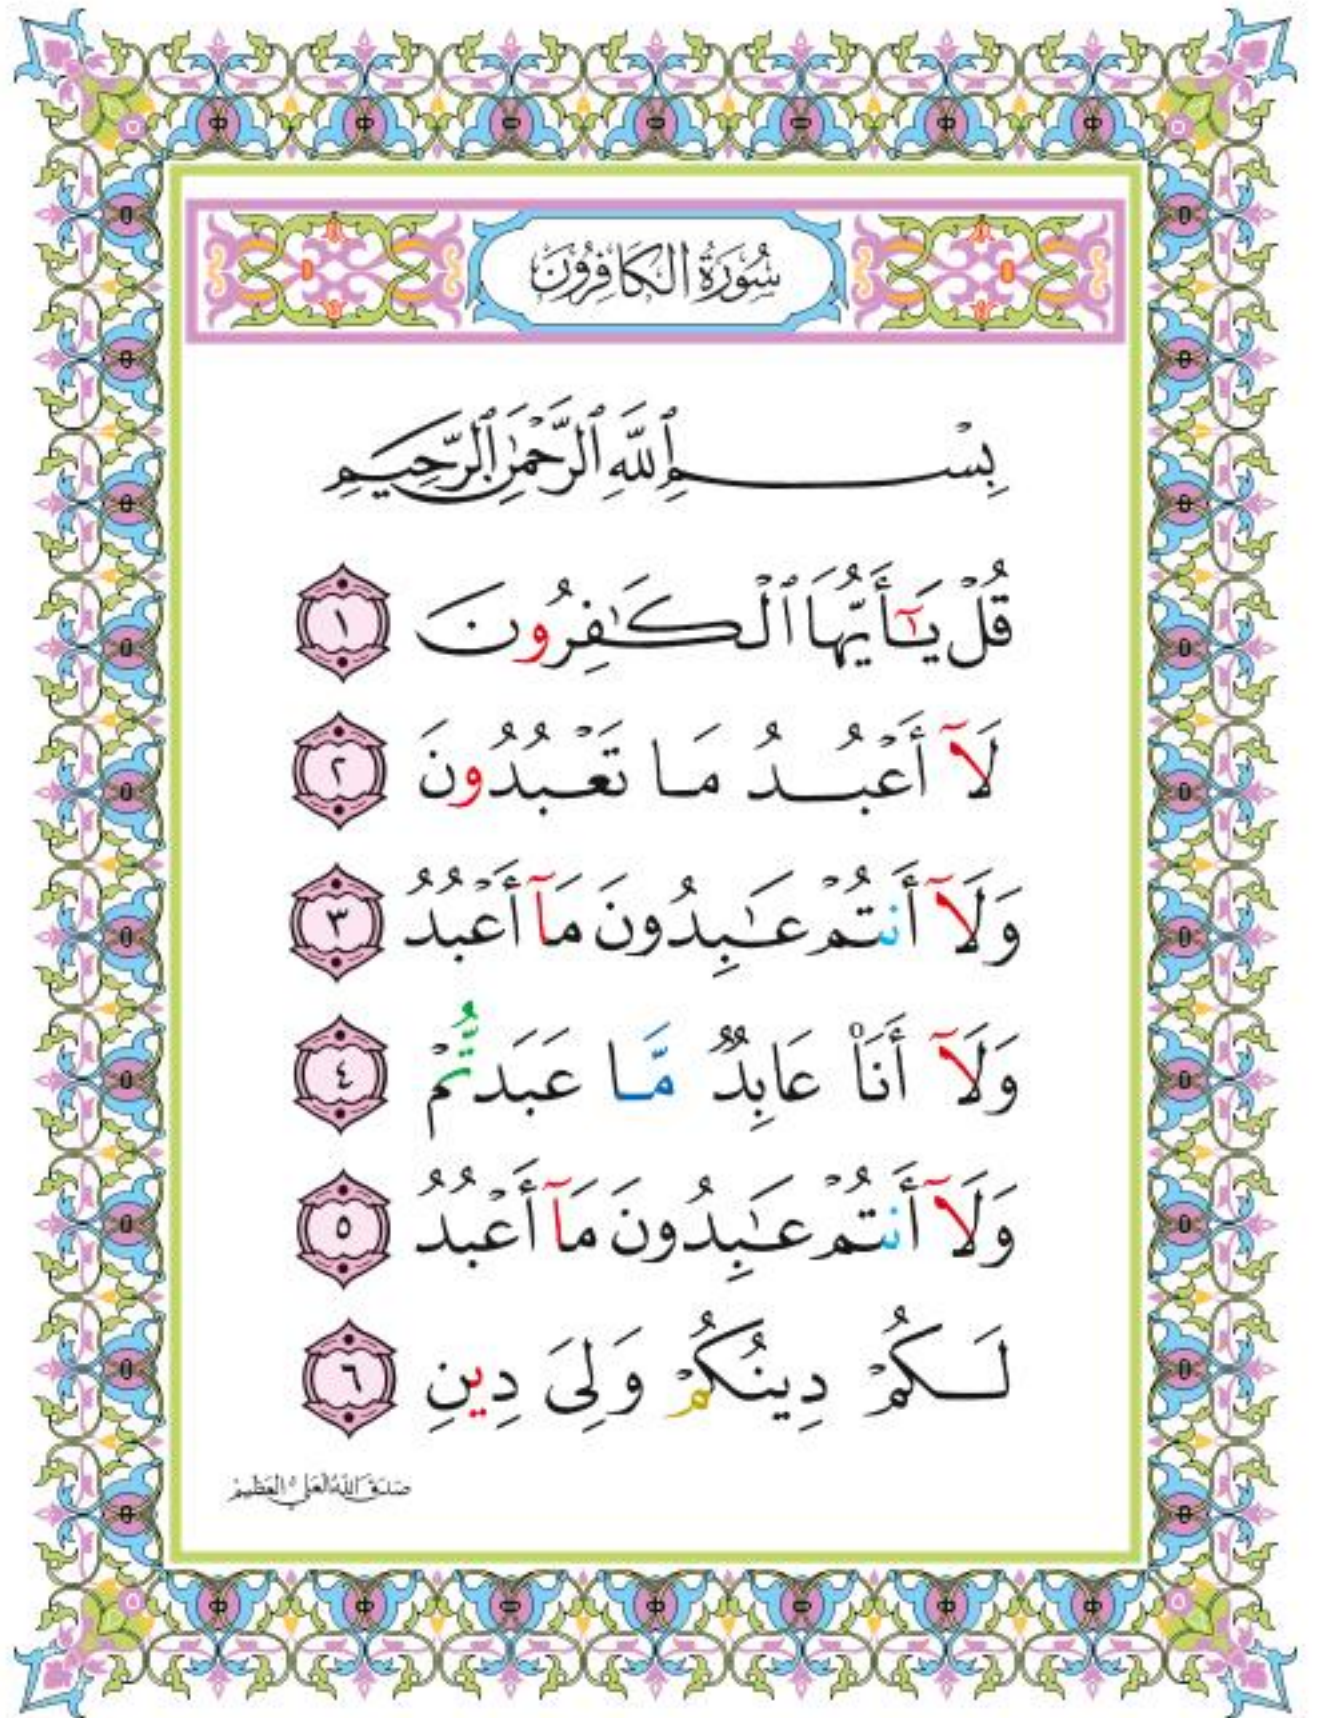 سُورَةُ الكَافِرُونَ
بِسْمِ ٱللَّهِ ٱلرَّحْمَٰنِ ٱلرَّحِيمِ
قُلْ يَٰٓأَيُّهَا ٱلْكَٰفِرُونَ ١
لَآ أَعْبُدُ مَا تَعْبُدُونَ ٢
وَلَآ أَنتُمْ عَٰبِدُونَ مَآ أَعْبُدُ ٣
وَلَآ أَنَا۠ عَابِدٌ مَّا عَبَدتُّمْ ٤
وَلَآ أَنتُمْ عَٰبِدُونَ مَآ أَعْبُدُ ٥
لَكُمْ دِينُكُمْ وَلِىَ دِينِ ٦
صَدَقَ اللَّهُ العَلِيُّ العَظِيمْ